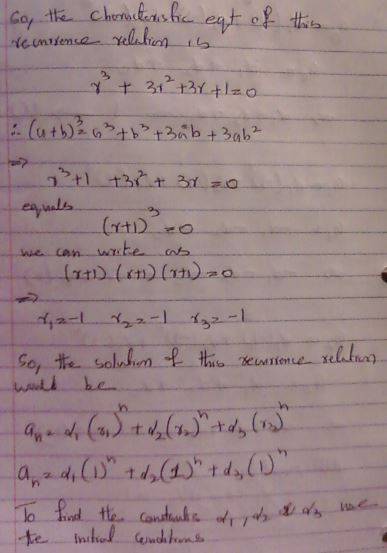 So, the characteristic eqt of this
recurrence relation is
r³ + 3r² + 3r + 1 = 0
∴ (a+b)³ = a³ + b³ + 3a²b + 3ab²
⇒
r³ + 1 + 3r² + 3r = 0
equals
(r+1)³ = 0
we can write as
(r+1) (r+1) (r+1) = 0
⇒
r₁ = -1 r₂ = -1 r₃ = -1
So, the solution of this recurrence relation
would be
aₙ = α₁ (r₁)ⁿ + α₂ (r₂)ⁿ + α₃ (r₃)ⁿ
aₙ = α₁ (1)ⁿ + α₂ (1)ⁿ + α₃ (1)ⁿ
To find the constants α₁, α₂ & α₃ use
the initial conditions